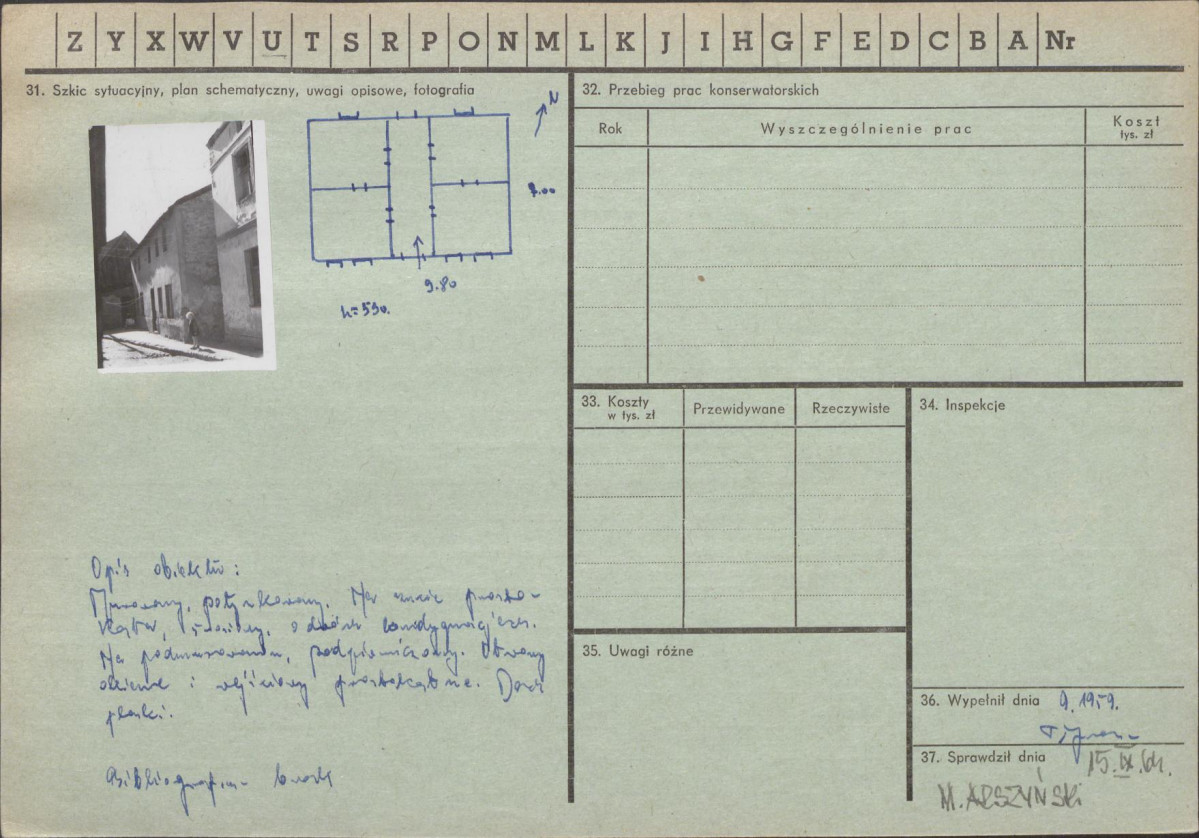 Z Y X W V U T S R P O N M L K J I H G F E D C B A Nr
31. Szkic sytuacyjny, plan schematyczny, uwagi opisowe, fotografia
N
7.00
9.80
h=590.
Opis obiektu:
Murowany, potynkowany. Na rzucie prosto-
kąta, o dwóch kondygnacjach.
Na podmurowaniu, podpiwniczony. Otwory
okienne i wejściowy prostokątne. Dach
płaski.
Bibliografia - brak
32. Przebieg prac konserwatorskich
Rok Wyszczególnienie prac Koszt
tys. zł
33. Koszty
w tys. zł
Przewidywane Rzeczywiste
34. Inspekcje
35. Uwagi różne
36. Wypełnił dnia 9.1959.
37. Sprawdził dnia 15.IX.64.
M. ARSZYŃSKI